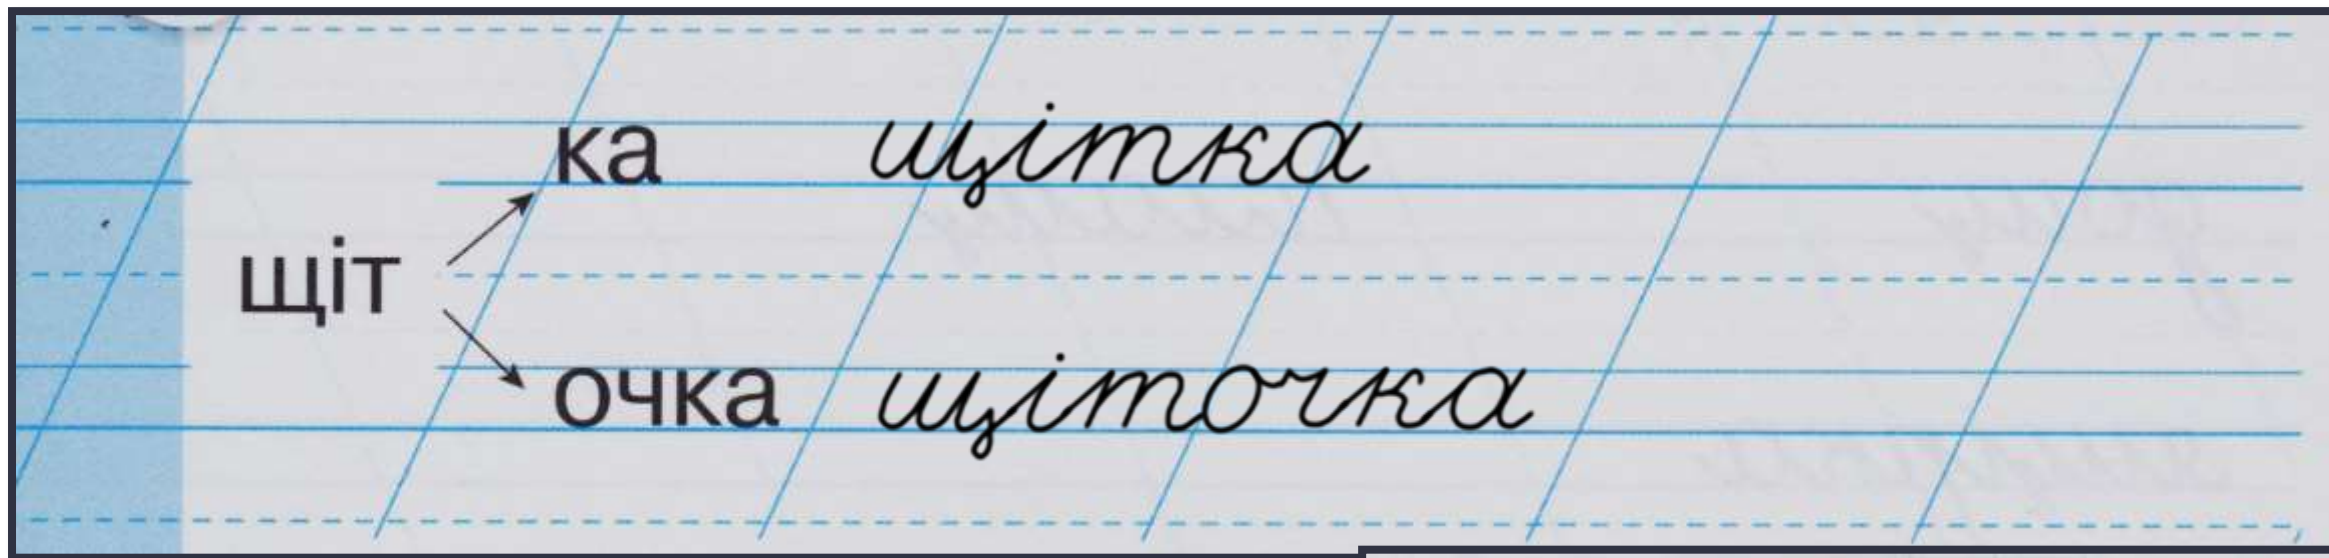 ка щітка
щіт
очка щіточка